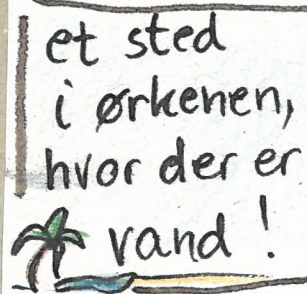 et sted
i ørkenen,
hvor der er
vand!